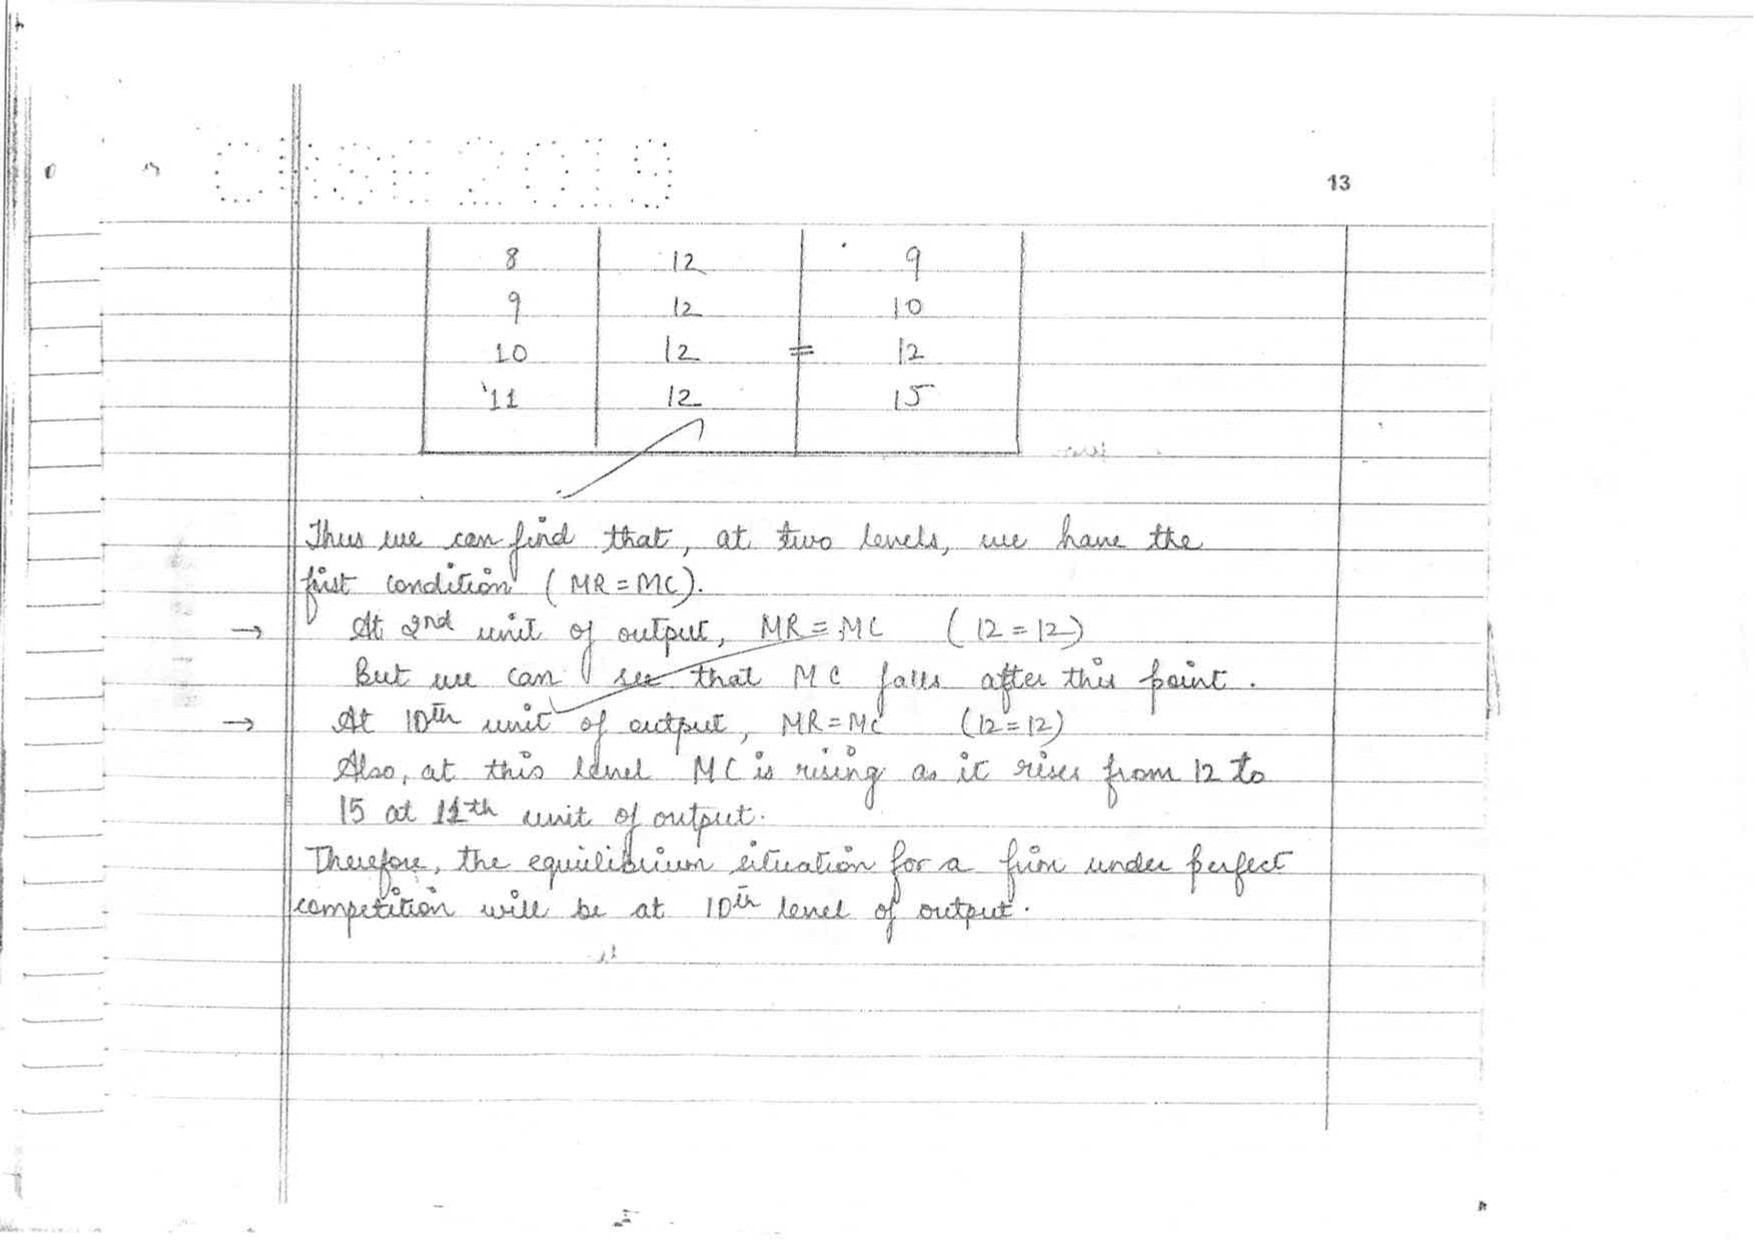 CBSE 2019
13
8 12 9
9 12 10
10 12 = 12
11 12 15
Thus we can find that, at two levels, we have the
first condition (MR = MC).
→ At 2nd unit of output, MR = MC (12 = 12)
But we can see that MC falls after this point.
→ At 10th unit of output, MR = MC (12 = 12)
Also, at this level MC is rising as it rises from 12 to
15 at 11th unit of output.
Therefore, the equilibrium situation for a firm under perfect
competition will be at 10th level of output.